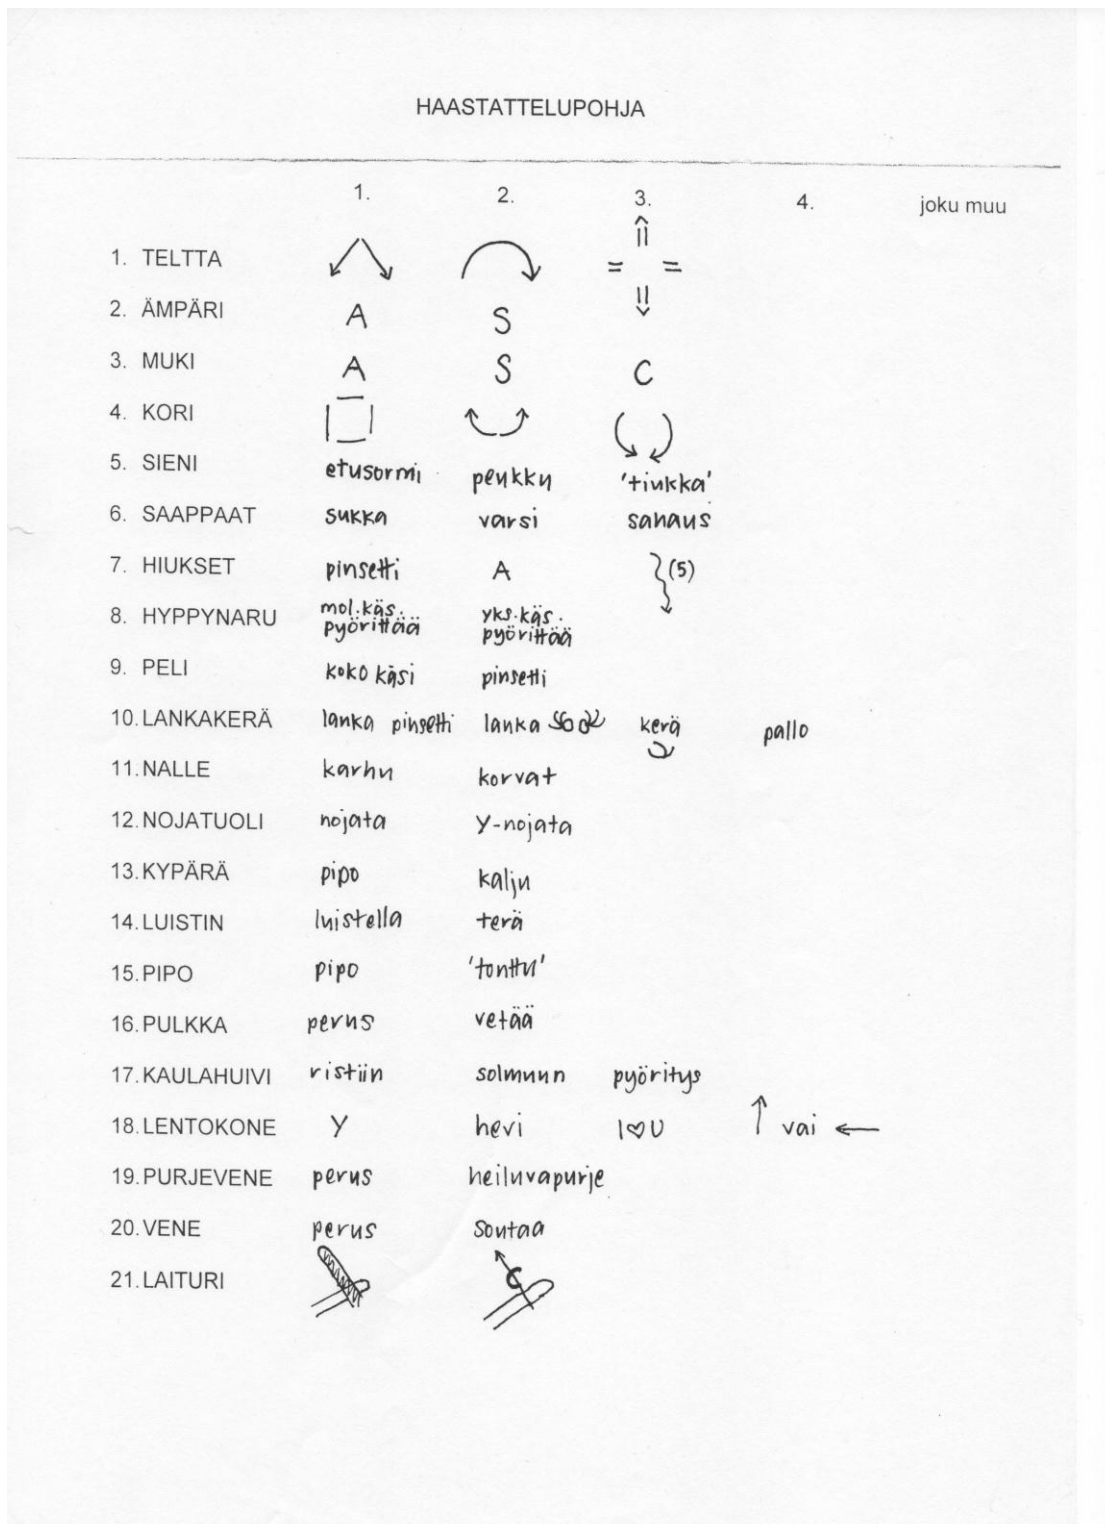 HAASTATTELUPOHJA
1. 2. 3. 4. joku muu
1. TELTTA
2. ÄMPÄRI A S
3. MUKI A S C
4. KORI
5. SIENI etusormi peukku 'tiukka'
6. SAAPPAAT sukka varsi sahaus
7. HIUKSET pinsetti A (5)
8. HYPPYNARU mol.käs. pyörittää yks.käs. pyörittää
9. PELI koko käsi pinsetti
10. LANKAKERÄ lanka pinsetti lanka kerä pallo
11. NALLE karhu korvat
12. NOJATUOLI nojata Y-nojata
13. KYPÄRÄ pipo kalju
14. LUISTIN luistella terä
15. PIPO pipo 'tonttu'
16. PULKKA perus vetää
17. KAULAHUIVI ristiin solmuun pyöritys
18. LENTOKONE Y hevi I♡U ↑ vai ←
19. PURJEVENE perus heiluvapurje
20. VENE perus soutaa
21. LAITURI